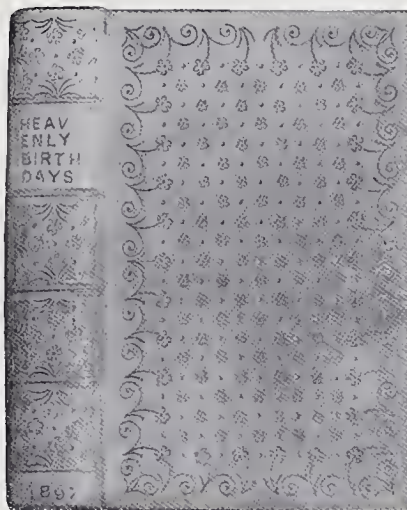 HEAV
ENLY
BIRTH
DAYS
1897